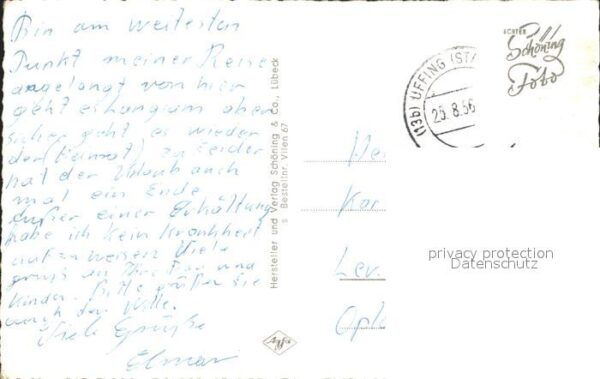 Bin am weitesten
Punkt meiner Reise
angelangt von hier
geht es langsam aber
sicher geht es wieder
der (Heimat) zu Leider
hat der Urlaub auch
mal ein Ende
außer einer Erkältung
habe ich kein Krankheit
aufzuweisen Viele
grüße an Ihre Frau und
Kinder. Bitte grüßen Sie
auch
Viele Grüße
Elmar
Hersteller und Verlag Schöning & Co., Lübeck
s Bestellnr. Vilen 67
Agfa
(13b) UFFING (ST
25.8.56
ECHTES
Schöning
Foto
Kar
Lev.
Opl
privacy protection
Datenschutz